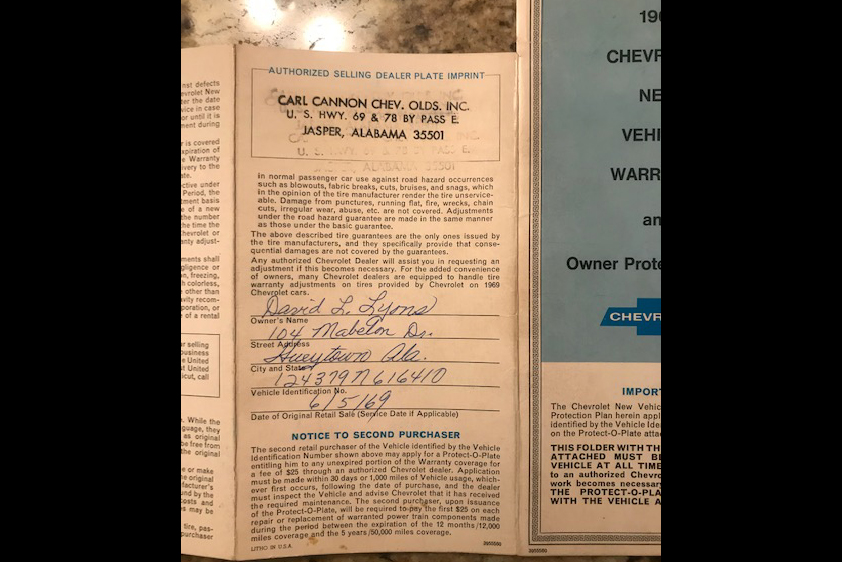 nst defects
evrolet New
ter the date
vice in case
or until it is
ment during
r is covered
xpiration of
e Warranty
ivery to the
ate.
ctive under
Period, the
tment basis
e of a new
the number
he time the
hevrolet or
anty adjust-
ments shall
gligence or
n, freezing,
h colorless,
other than
avity recom-
poration, or
of a rental
er selling
business
e United
t United
icut, call
. While the
guage, they
as original
be free from
the original
e or make
e original
facturer's
und by the
osts and
s may be
tire, pas-
purchaser
AUTHORIZED SELLING DEALER PLATE IMPRINT
CARL CANNON CHEV. OLDS. INC.
U. S. HWY. 69 & 78 BY PASS E.
JASPER, ALABAMA 35501
in normal passenger car use against road hazard occurrences
such as blowouts, fabric breaks, cuts, bruises, and snags, which
in the opinion of the tire manufacturer render the tire unservice-
able. Damage from punctures, running flat, fire, wrecks, chain
cuts, irregular wear, abuse, etc. are not covered. Adjustments
under the road hazard guarantee are made in the same manner
as those under the basic guarantee.
The above described tire guarantees are the only ones issued by
the tire manufacturers, and they specifically provide that conse-
quential damages are not covered by the guarantees.
Any authorized Chevrolet Dealer will assist you in requesting an
adjustment if this becomes necessary. For the added convenience
of owners, many Chevrolet dealers are equipped to handle tire
warranty adjustments on tires provided by Chevrolet on 1969
Chevrolet cars.
David L. Lyons
Owner's Name
104 Mabelon Dr.
Street Address
Hueytown Ala.
City and State
124379N616410
Vehicle Identification No.
6/5/69
Date of Original Retail Sale (Service Date if Applicable)
NOTICE TO SECOND PURCHASER
The second retail purchaser of the Vehicle identified by the Vehicle
Identification Number shown above may apply for a Protect-O-Plate
entitling him to any unexpired portion of the Warranty coverage for
a fee of $25 through an authorized Chevrolet dealer. Application
must be made within 30 days or 1,000 miles of Vehicle usage, which-
ever first occurs, following the date of purchase, and the dealer
must inspect the Vehicle and advise Chevrolet that it has received
the required maintenance. The second purchaser, upon issuance
of the Protect-O-Plate, will be required to pay the first $25 on each
repair or replacement of warranted power train components made
during the period between the expiration of the 12 months/12,000
miles coverage and the 5 years/50,000 miles coverage.
LITHO IN U.S.A.
3955580
196
CHEVR
NE
VEHI
WARR
an
Owner Prote
CHEVR
IMPOR
The Chevrolet New Vehic
Protection Plan herein appl
identified by the Vehicle Ide
on the Protect-O-Plate atta
THIS FOLDER WITH TH
ATTACHED MUST BE
VEHICLE AT ALL TIME
to an authorized Chevro
work becomes necessary
THE PROTECT-O-PLA
WITH THE VEHICLE A
3955580